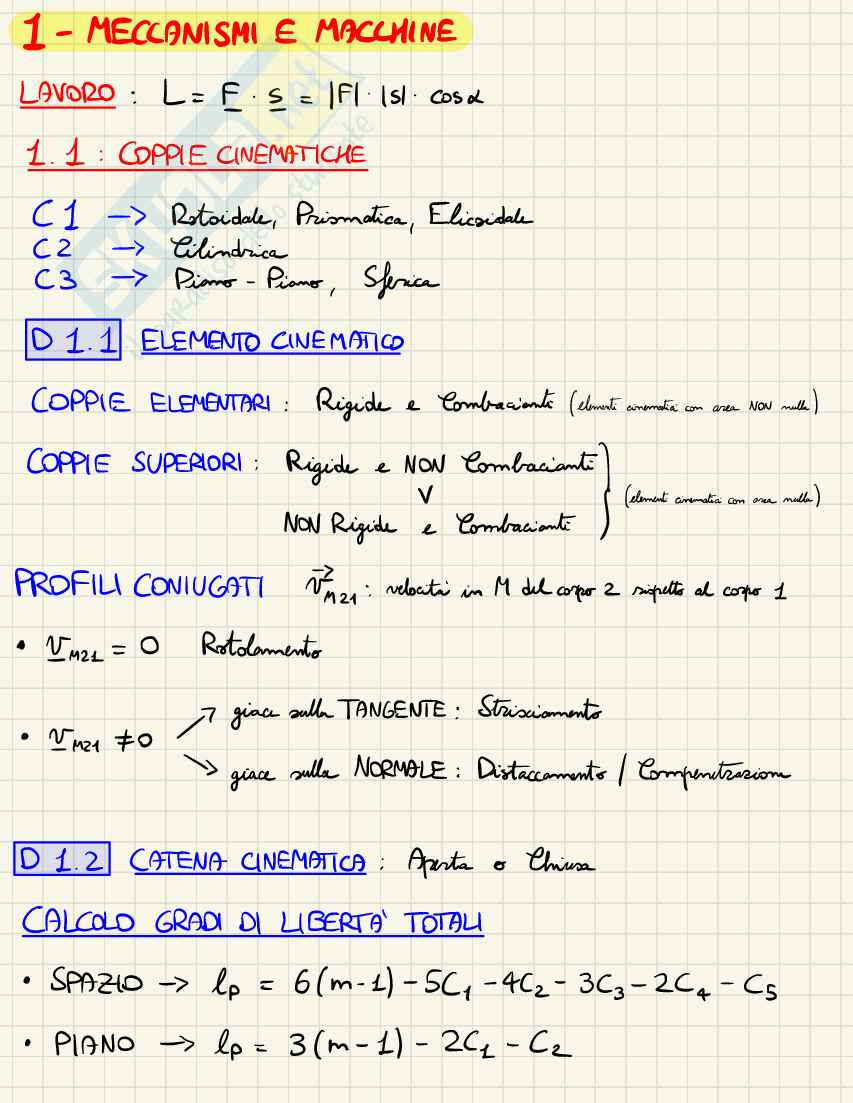 1 - MECCANISMI E MACCHINE
LAVORO : L = F · s = |F| · |s| · cosα
1.1 : COPPIE CINEMATICHE
C1 → Rotoidale, Prismatica, Elicoidale
C2 → Cilindrica
C3 → Piano - Piano, Sferica
D 1.1 ELEMENTO CINEMATICO
COPPIE ELEMENTARI : Rigide e Combacianti (elementi cinematici con area NON nulla)
COPPIE SUPERIORI : Rigide e NON Combacianti
V
(elementi cinematici con area nulla)
NON Rigide e Combacianti
PROFILI CONIUGATI v⃗M21 : velocità in M del corpo 2 rispetto al corpo 1
• vM21 = 0 Rotolamento
• vM21 ≠ 0
↗ giace sulla TANGENTE : Strisciamento
↘ giace sulla NORMALE : Distaccamento / Compenetrazione
D 1.2 CATENA CINEMATICA : Aperta o Chiusa
CALCOLO GRADI DI LIBERTA' TOTALI
• SPAZIO → lp = 6(m-1) - 5C1 - 4C2 - 3C3 - 2C4 - C5
• PIANO → lp = 3(m-1) - 2C1 - C2